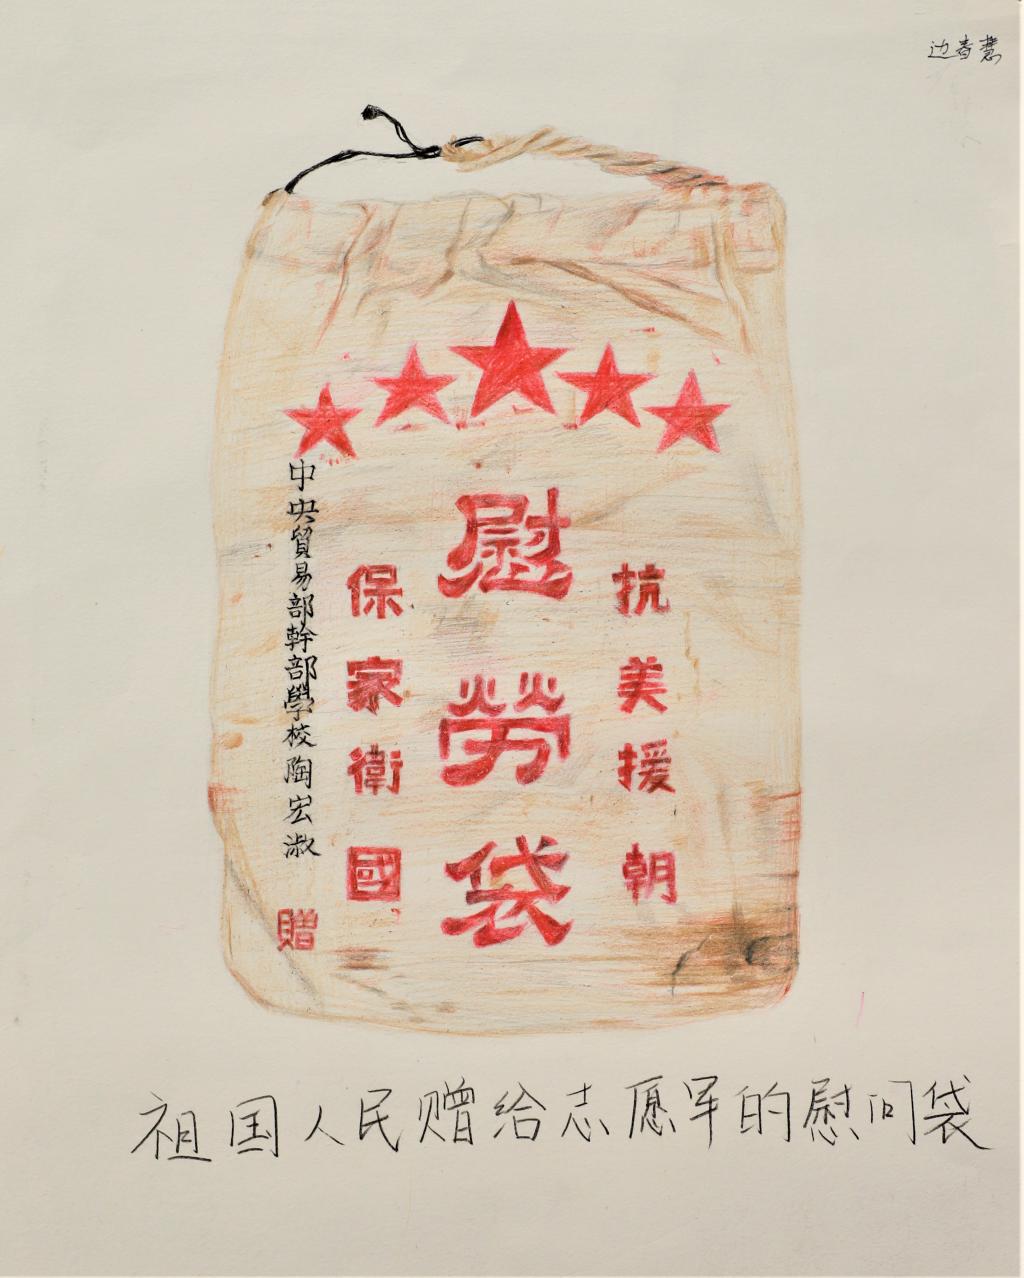 边春慧
抗美援朝
慰勞袋
保家衛國
中央貿易部幹部學校陶宏淑
贈
祖国人民赠给志愿军的慰问袋